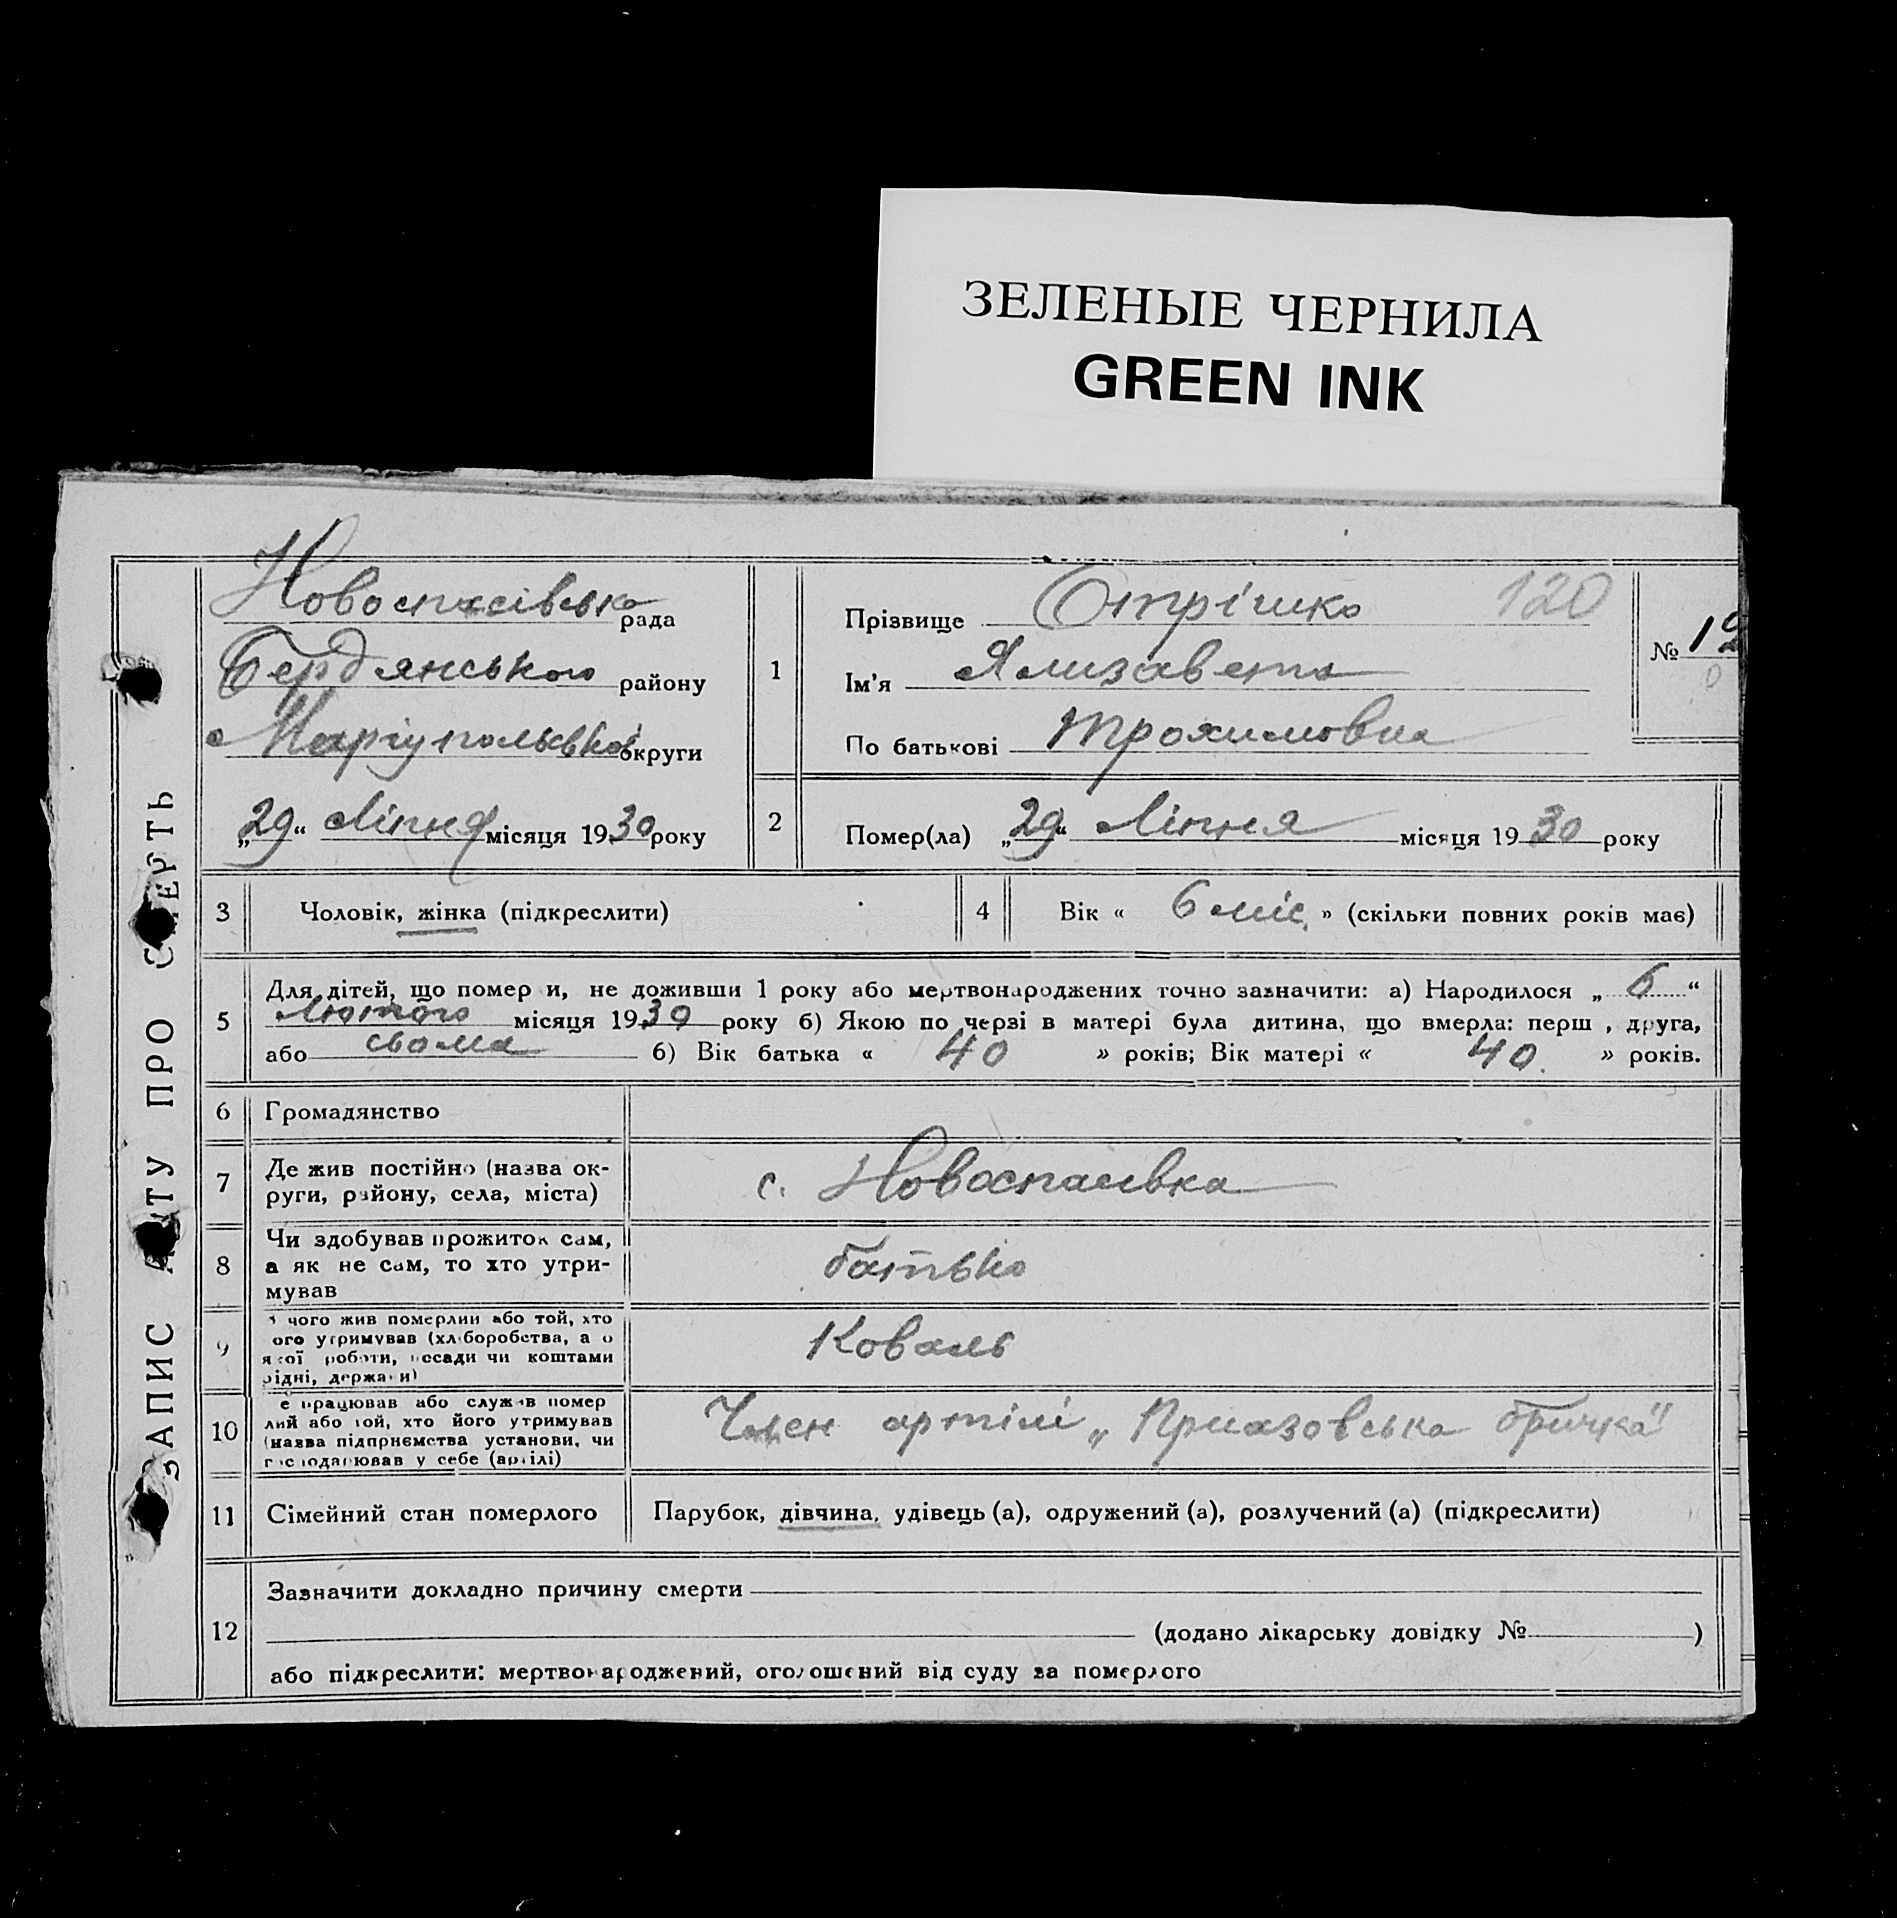 ЗЕЛЕНЫЕ ЧЕРНИЛА
GREEN INK
ЗАПИС АКТУ ПРО СМЕРТЬ
Новоспасівська рада
Бердянського району
Маріупольської округи
„29“ Ліпня місяця 1930 року
1
Прізвище Отрішко 120
Ім’я Ялизавета
По батькові Трохимовна
№ 12
2
Помер(ла) „29“ Ліпня місяця 1930 року
3 Чоловік, жінка (підкреслити)
4 Вік « 6 міс. » (скільки повних років має)
5 Для дітей, що помер и, не доживши 1 року або мертвонароджених точно зазначити: а) Народилося „ 6 “
Лютого місяця 1930 року б) Якою по черзі в матері була дитина, що вмерла: перш , друга,
або сьома б) Вік батька « 40 » років; Вік матері « 40. » років.
6 Громадянство
7 Де жив постійно (назва ок-
руги, району, села, міста)
с. Новоспасівка
8 Чи здобував прожиток сам,
а як не сам, то хто утри-
мував
батько
9 з чого жив померлий або той, хто
ого утримував (хліборобства, а о
якої роботи, посади чи коштами
рідні, держави)
Коваль
10 е працював або служив помер
лий або той, хто його утримував
(назва підприємства установи, чи
господарював у себе (артілі)
Член артілі „Приазовська бричка“
11 Сімейний стан померлого
Парубок, дівчина, удівець (а), одружений (а), розлучений (а) (підкреслити)
12 Зазначити докладно причину смерти
(додано лікарську довідку № )
або підкреслити: мертвонароджений, оголошений від суду за померлого